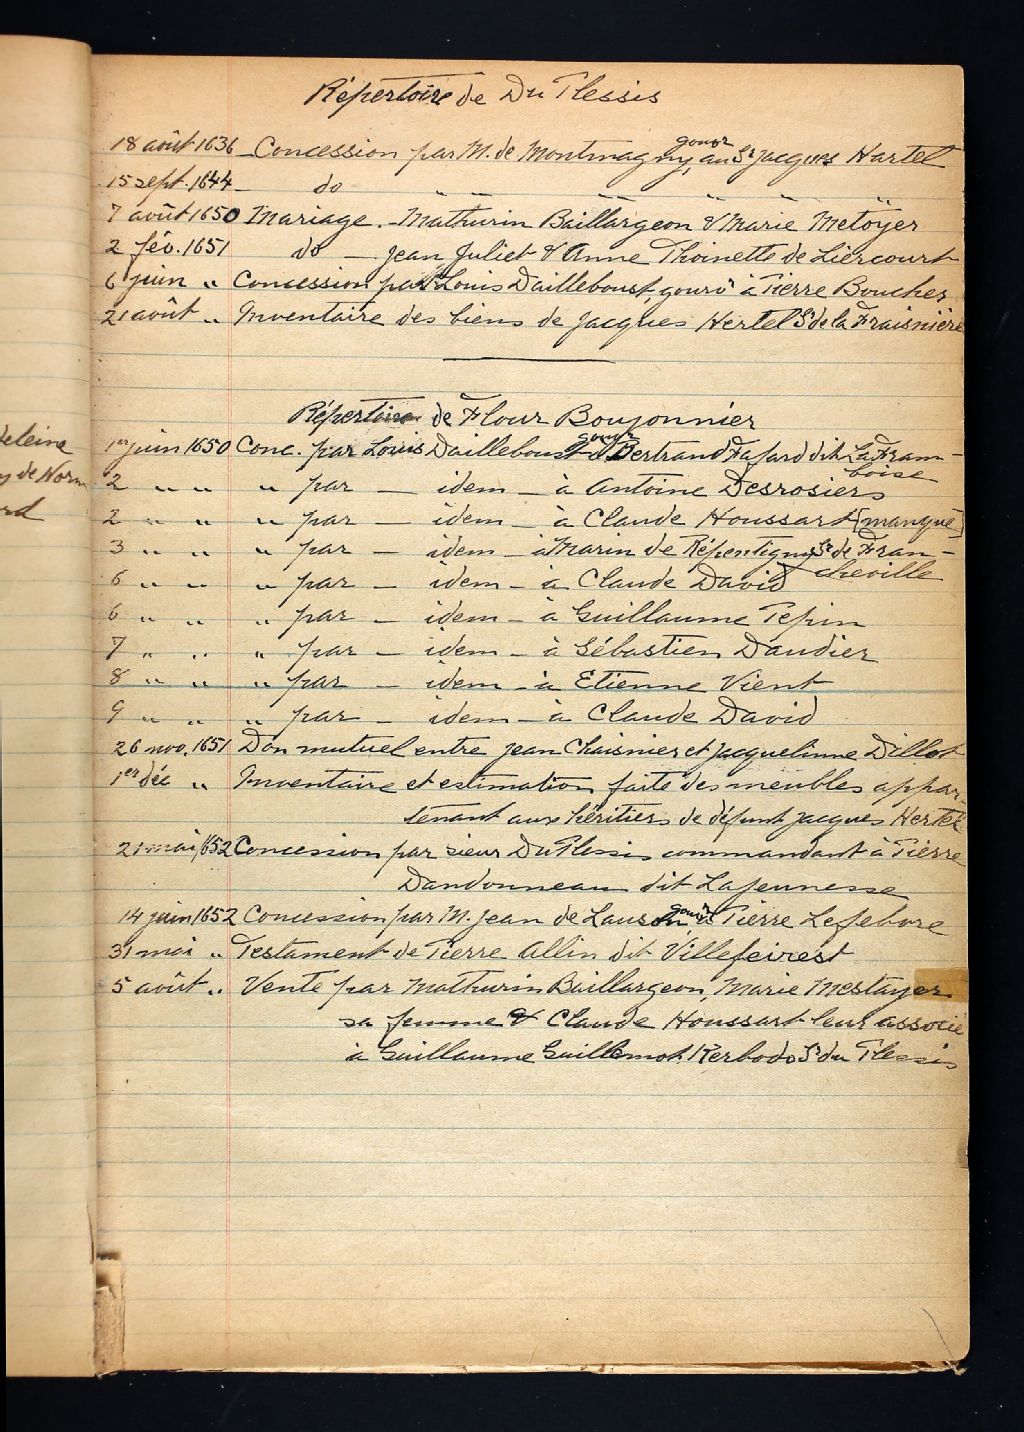 Répertoire de Du Plessis
18 août 1636 Concession par M. de Montmagny, gouvr au Sr Jacques Hartel
15 sept. 1644 do " " " " "
7 août 1650 Mariage. Mathurin Baillargeon & Marie Metoyer
2 fév. 1651 do — Jean Juliet & Anne Thoinette de Liercourt
6 juin " Concession par Louis Dailleboust, gouvr à Pierre Boucher
21 août " Inventaire des biens de Jacques Hertel Sr de la Fraisnière
Répertoire de Flour Boujonnier
1er juin 1650 Conc. par Louis Dailleboust gouvr à Bertrand Fafard dit La Fram-
boise
2 " " " par — idem — à Antoine Desrosiers
2 " " " par — idem — à Claude Houssart [manque]
3 " " " par — idem — à Marin de Répentigny Sr de Fran-
cheville
6 " " " par — idem — à Claude David
6 " " " par — idem — à Guillaume Pepin
7 " " " par — idem — à Sébastien Daudier
8 " " " par — idem — à Etienne Vient
9 " " " par — idem — à Claude David
26 nov. 1651 Don mutuel entre Jean Chaisnier et Jacquelinne Dillot
1er déc " Inventaire et estimation faite des meubles appar-
tenant aux héritiers de défunt Jacques Hertel
21 mai 1652 Concession par sieur Du Plessis commandant à Pierre
Dandonneau dit Lajeunesse
14 juin 1652 Concession par M. Jean de Lauson, gouvr à Pierre Lefebvre
31 mai " Testament de Pierre Allin dit Villefeirest
5 août " Vente par Mathurin Baillargeon, Marie Mestayer
sa femme & Claude Houssart leur associé
à Guillaume Guillemot Kerbodo Sr du Plessis